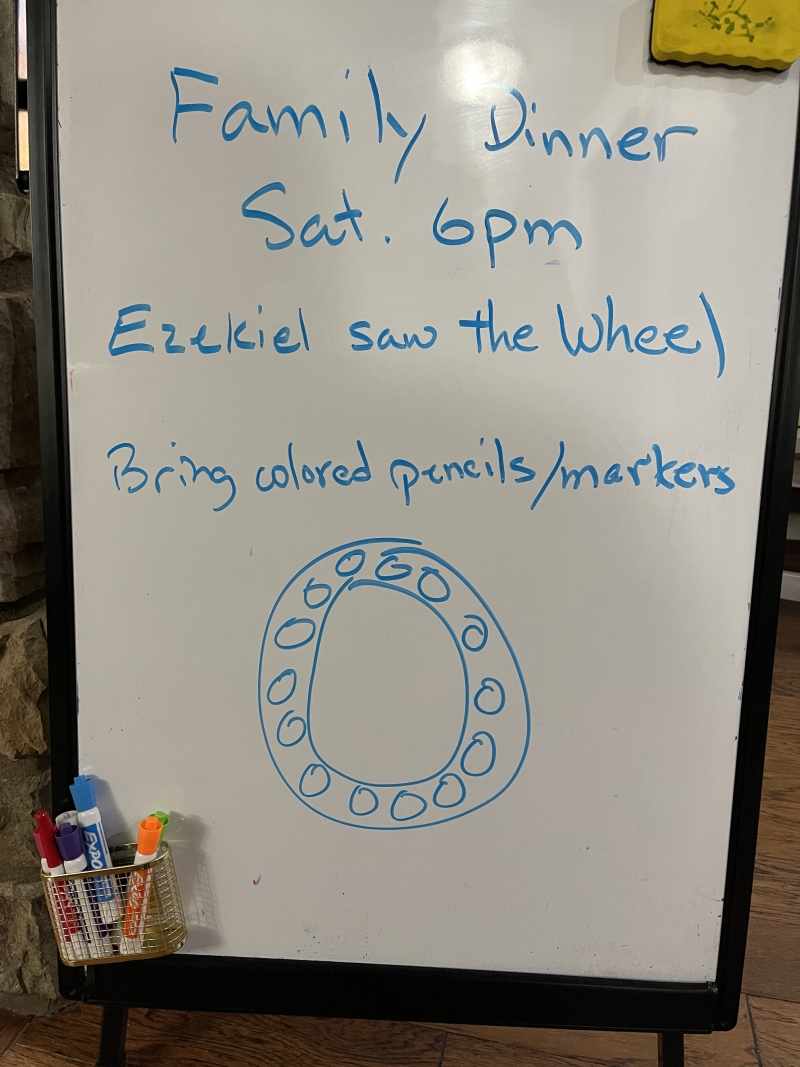 Family Dinner
Sat. 6pm
Ezekiel saw the Wheel
Bring colored pencils/markers
EXPO